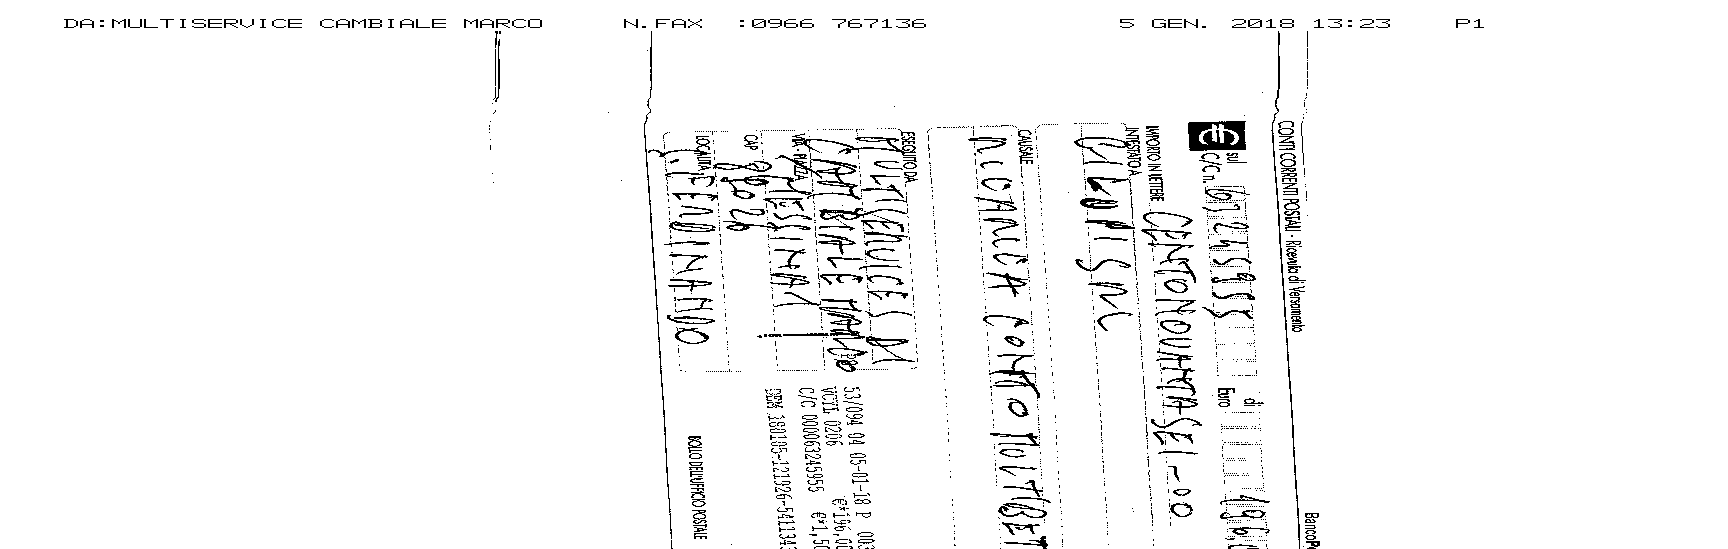 DA:MULTISERVICE CAMBIALE MARCO N.FAX :0966 767136 5 GEN. 2018 13:23 P1
CONTI CORRENTI POSTALI - Ricevuta di Versamento BancoP
sul C/C n. 63245955 di Euro 196,0
IMPORTO IN LETTERE CENTONOVANTASEI-00
INTESTATO A
CAUSALE
RICARICA CONTO MOLTIBET
ESEGUITO DA
MULTISERVICES DI
CAMBIALE MARCO
VIA - PIAZZA MESSINA 1
CAP 89026
LOCALITÀ S. FERDINANDO
53/094 04 05-01-18 P 003
VCYL 0206 €*196,00
C/C 000063245955 €*1,50
BOLLO DELL'UFFICIO POSTALE